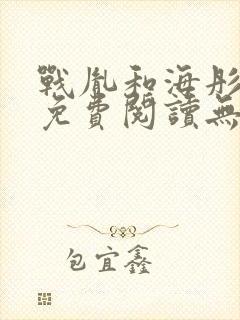 戰胤和海彤
免費閱讀無
包宜鑫